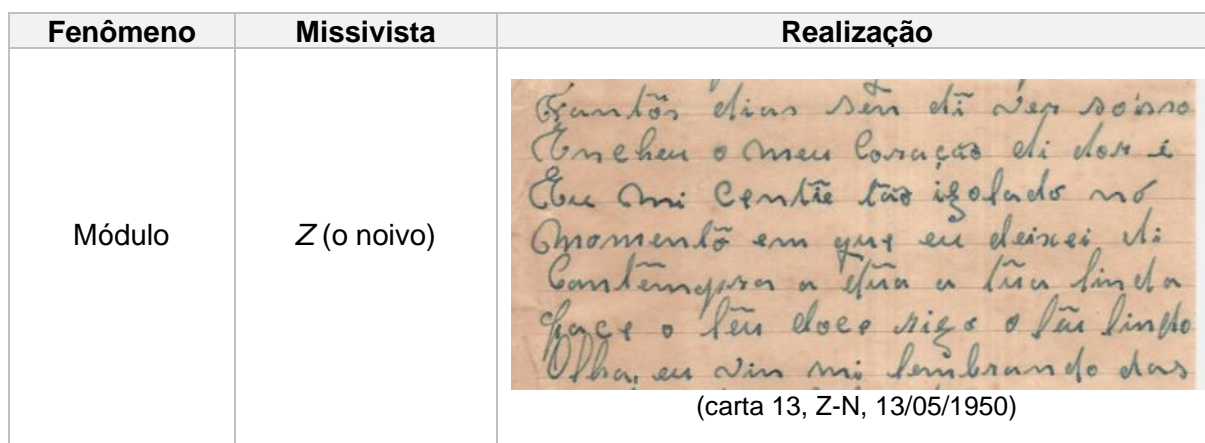 Fenômeno Missivista Realização
Módulo Z (o noivo)
dias sen di ver soisso
Encheu o meu Coração di dor i
Eu mi Centie tão izolado nó
momentõ em que eu deixei di
a tũa linda
face o tẽu doce o tẽu lindo
Olha, eu vin mi lembrando das
(carta 13, Z-N, 13/05/1950)